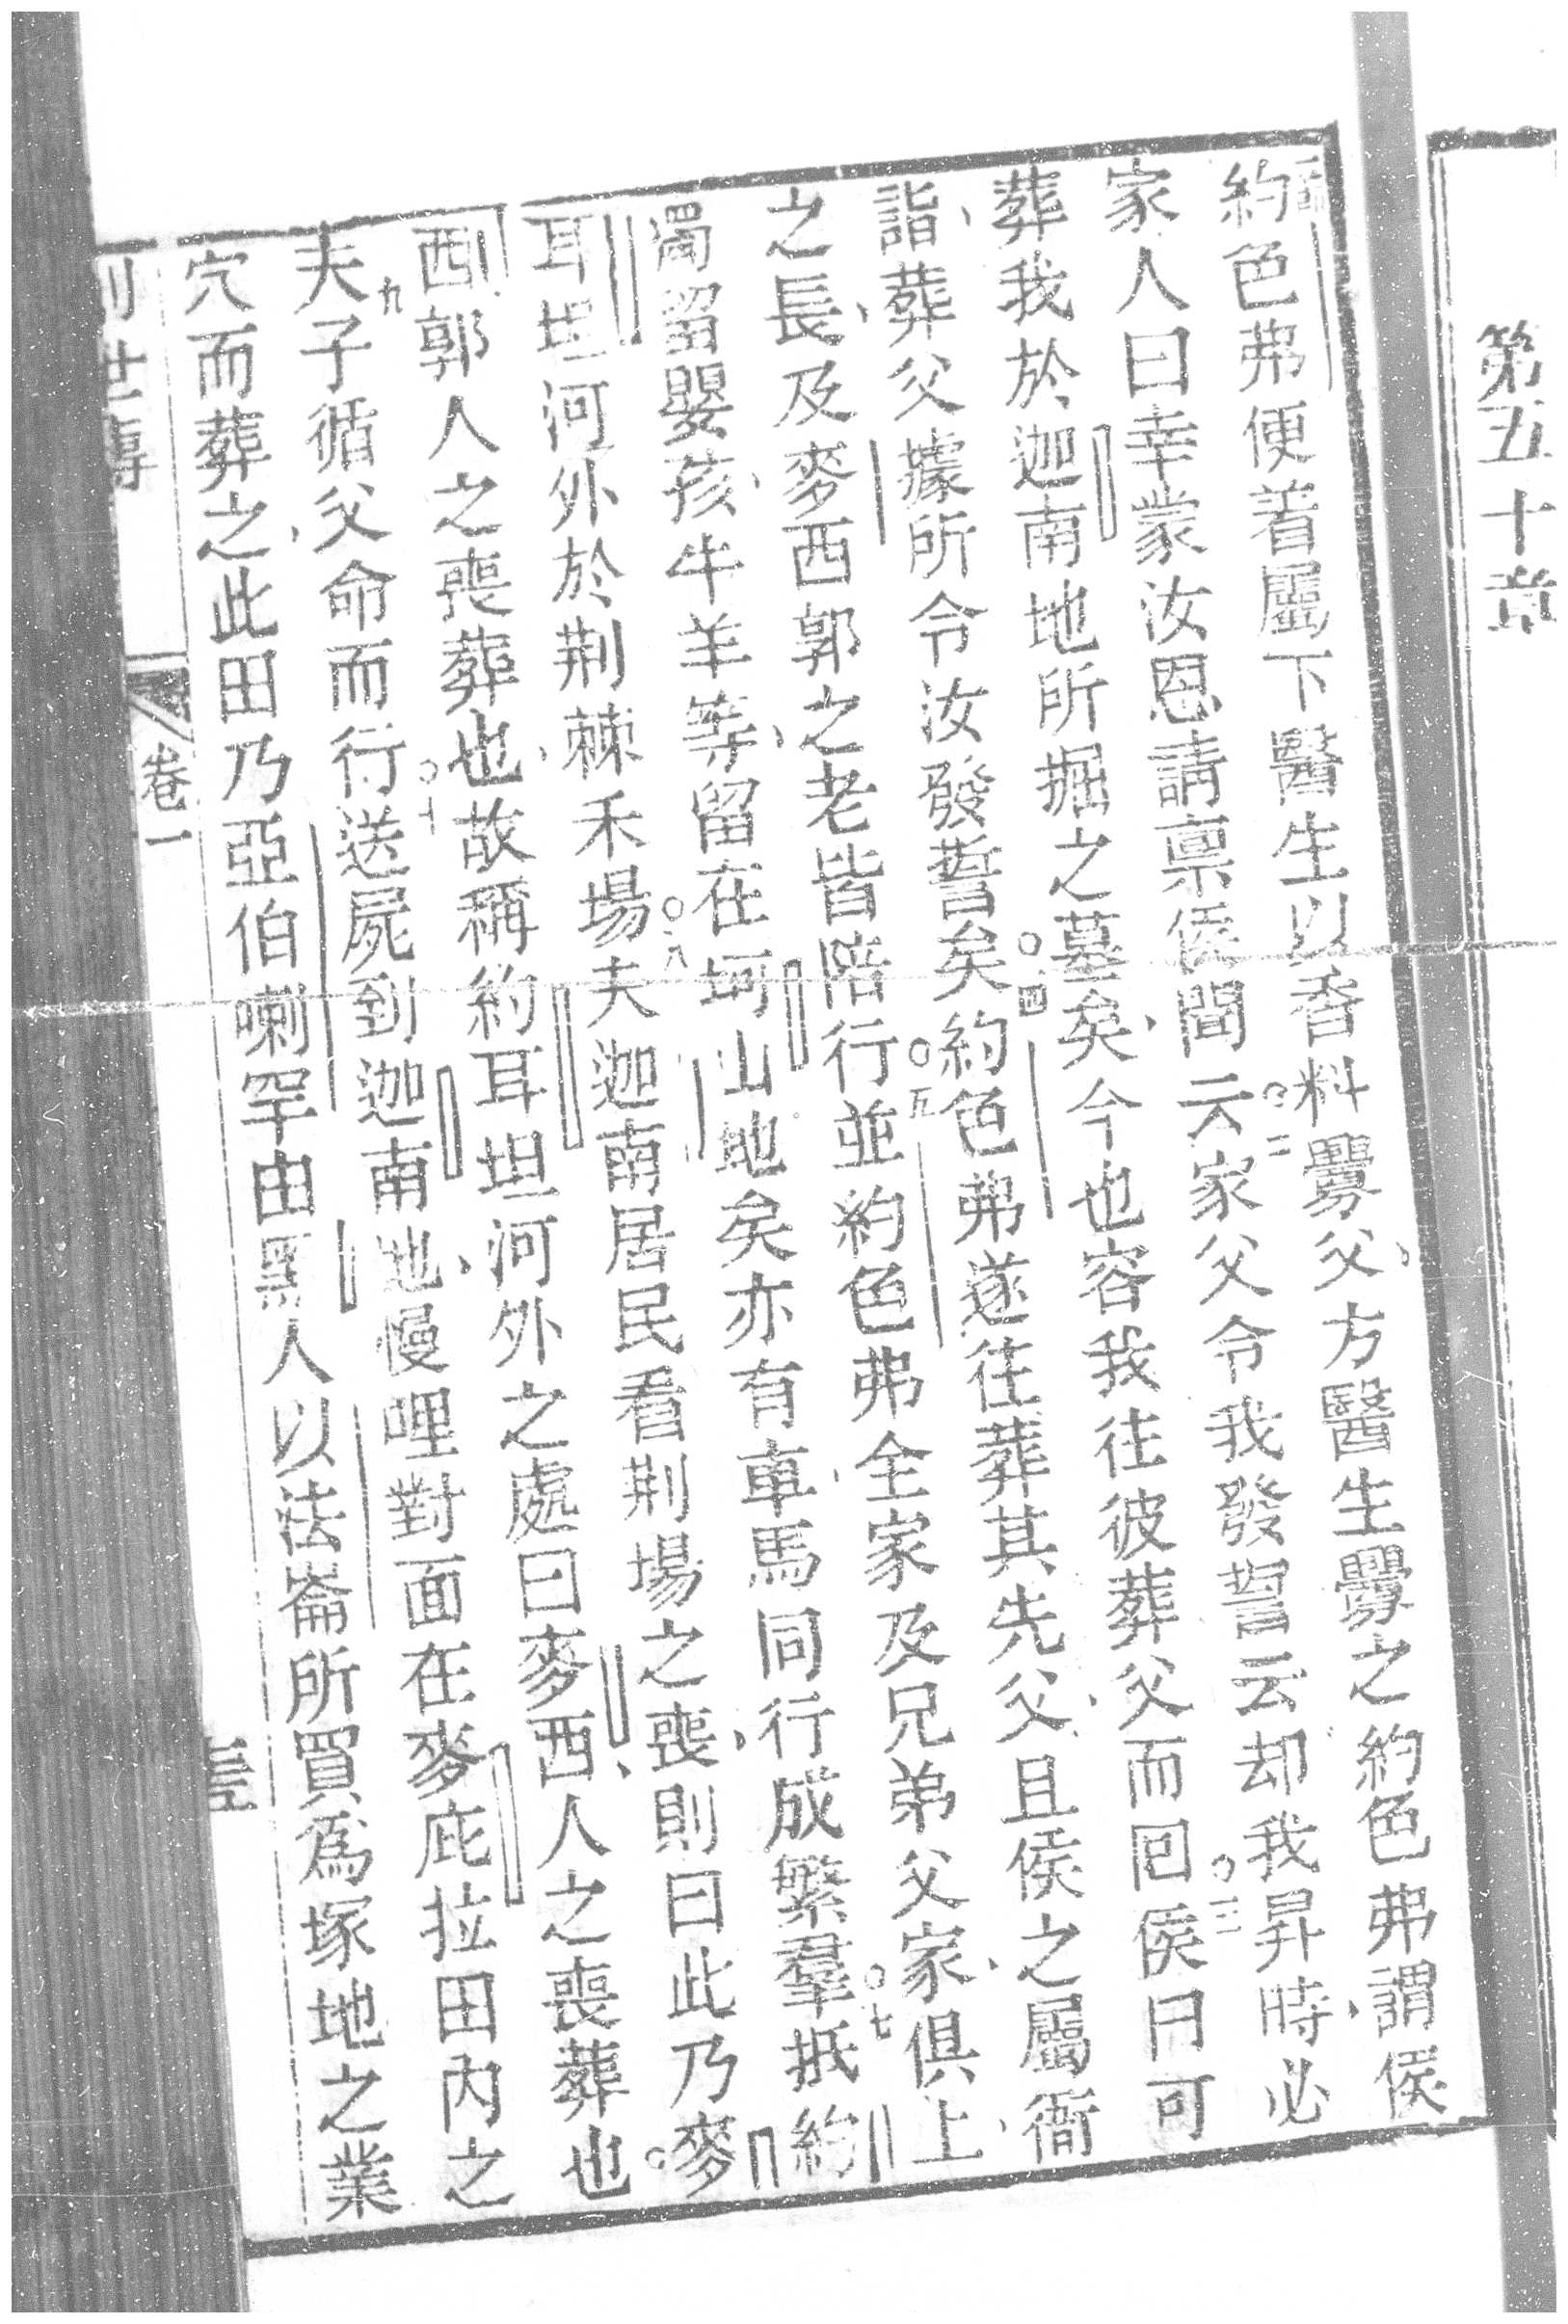 第五十章
約色弗便着屬下醫生以香料釁父方醫生釁之約色弗謂侯
家人曰幸蒙汝恩請禀侯聞云○二家父令我發誓云却我昇時必
葬我於迦南地所掘之墓矣今也容我往彼葬父而回○三侯曰可
詣葬父據所令汝發誓矣○四約色弗遂往葬其先父且侯之屬衙
之長及麥西郭之老皆陪行○五並約色弗全家及兄弟父家俱上
獨留嬰孩牛羊等留在坷山地矣亦有車馬同行成繁羣○七抵約
耳坦河外於荆棘禾場○八夫迦南居民看荆場之喪則曰此乃麥
西郭人之喪葬也故稱約耳坦河外之處曰麥西人之喪葬也
夫九子循父命而行○十送屍到迦南地慢哩對面在麥庇拉田內之
穴而葬之此田乃亞伯喇罕由黑人以法崙所買爲塚地之業
卷一